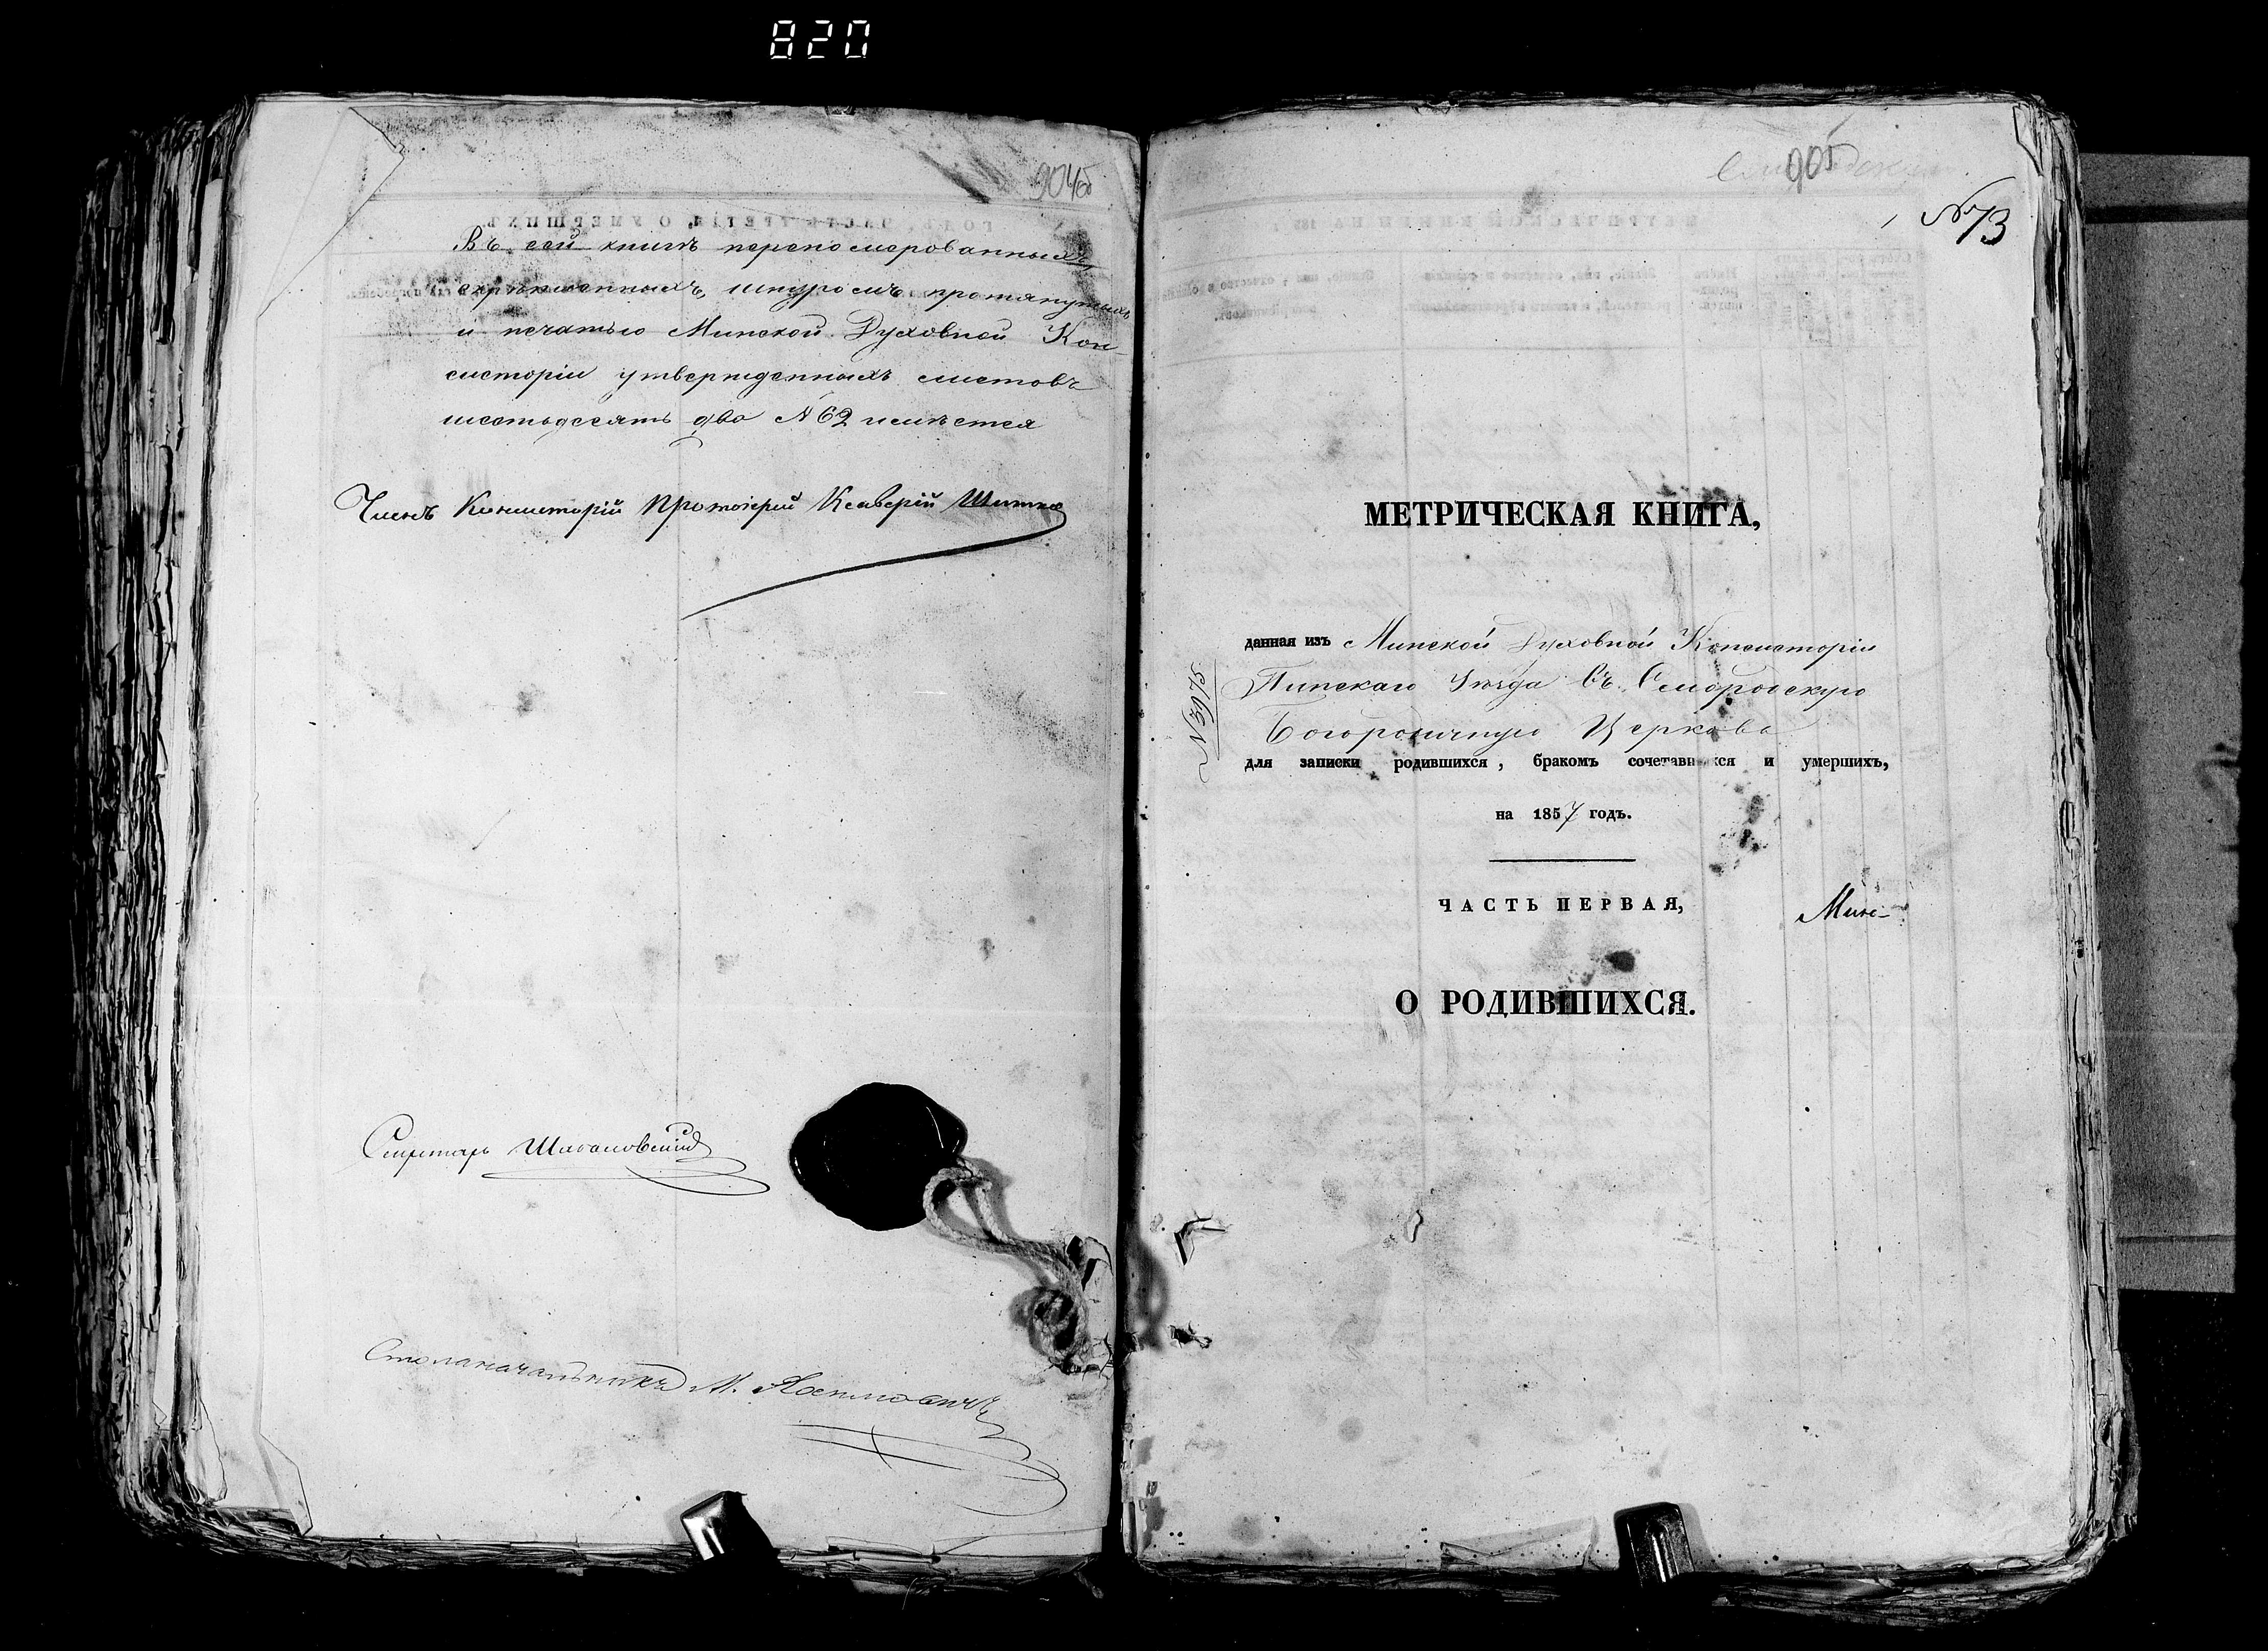 820
904об
Въ сей книгѣ перенумерованныхъ,
скрѣпленныхъ, шнуромъ протянутыхъ
и печатью Минской Духовной Кон-
систоріи утвержденныхъ листовъ
шестьдесятъ два №62 имѣется
Членъ Консисторіи Протоіерей Ксаверій
Секретарь
Столоначальникъ М.
905
№73
МЕТРИЧЕСКАЯ КНИГА,
данная изъ Минской Духовной Консисторіи
Пинскаго Уѣзда въ Смородскую
Богородичную Церковь
№3975
для записки родившихся, бракомъ сочетавшихся и умершихъ,
на 1857 годъ.
ЧАСТЬ ПЕРВАЯ,
Минс-
О РОДИВШИХСЯ.